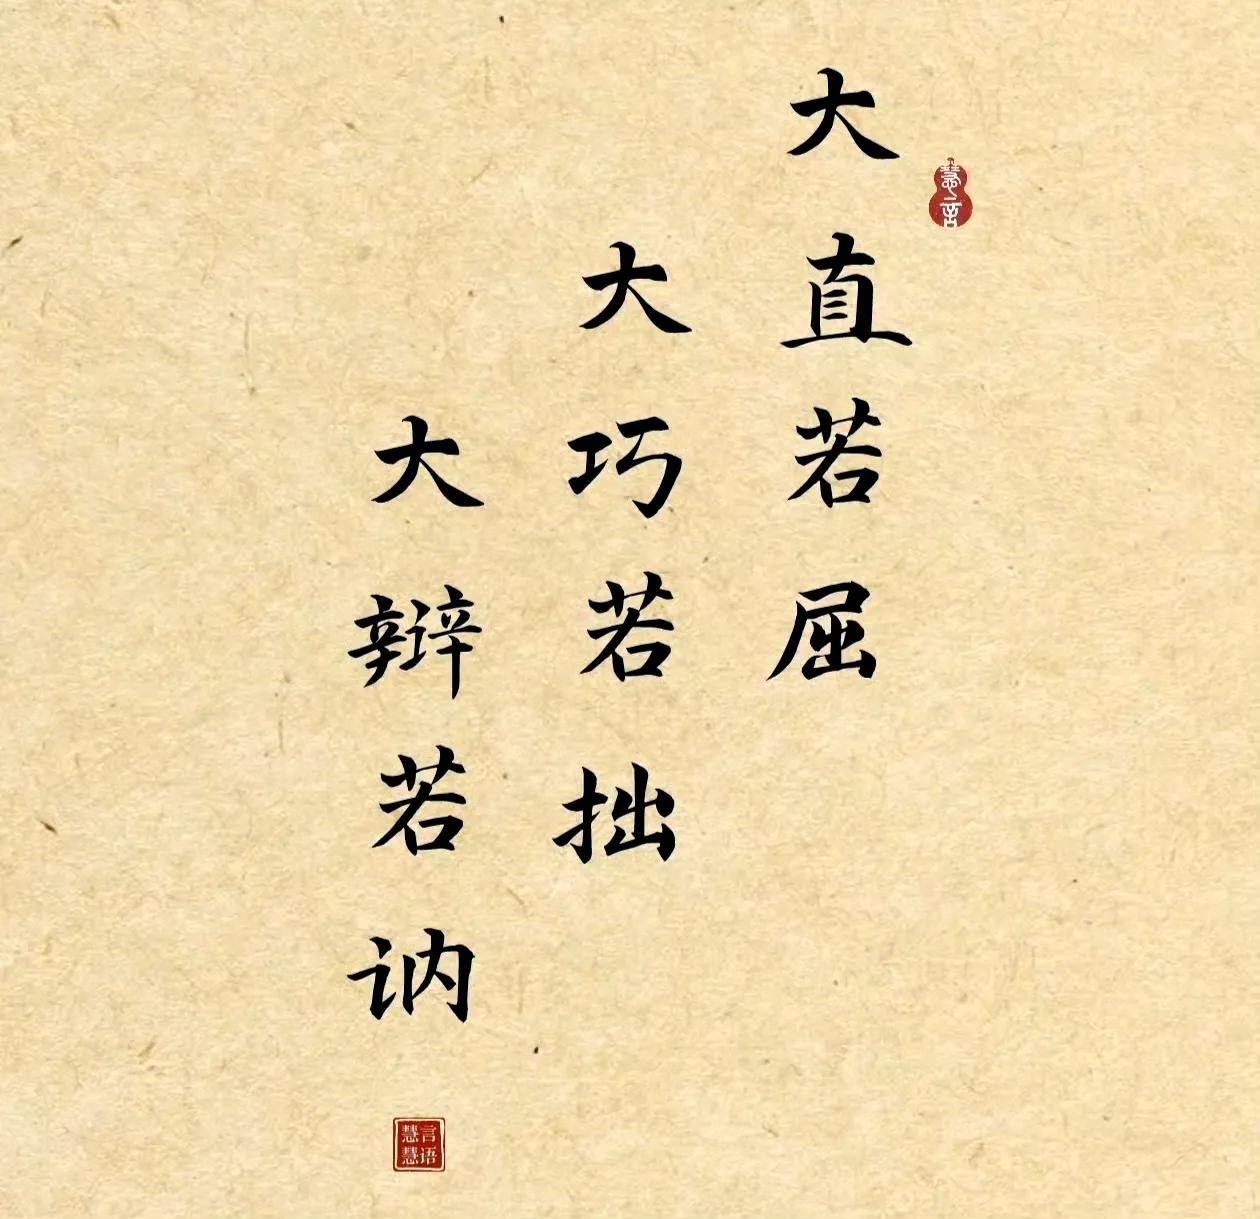 大直若屈
慧言
大巧若拙
大辩若讷
言语
慧慧